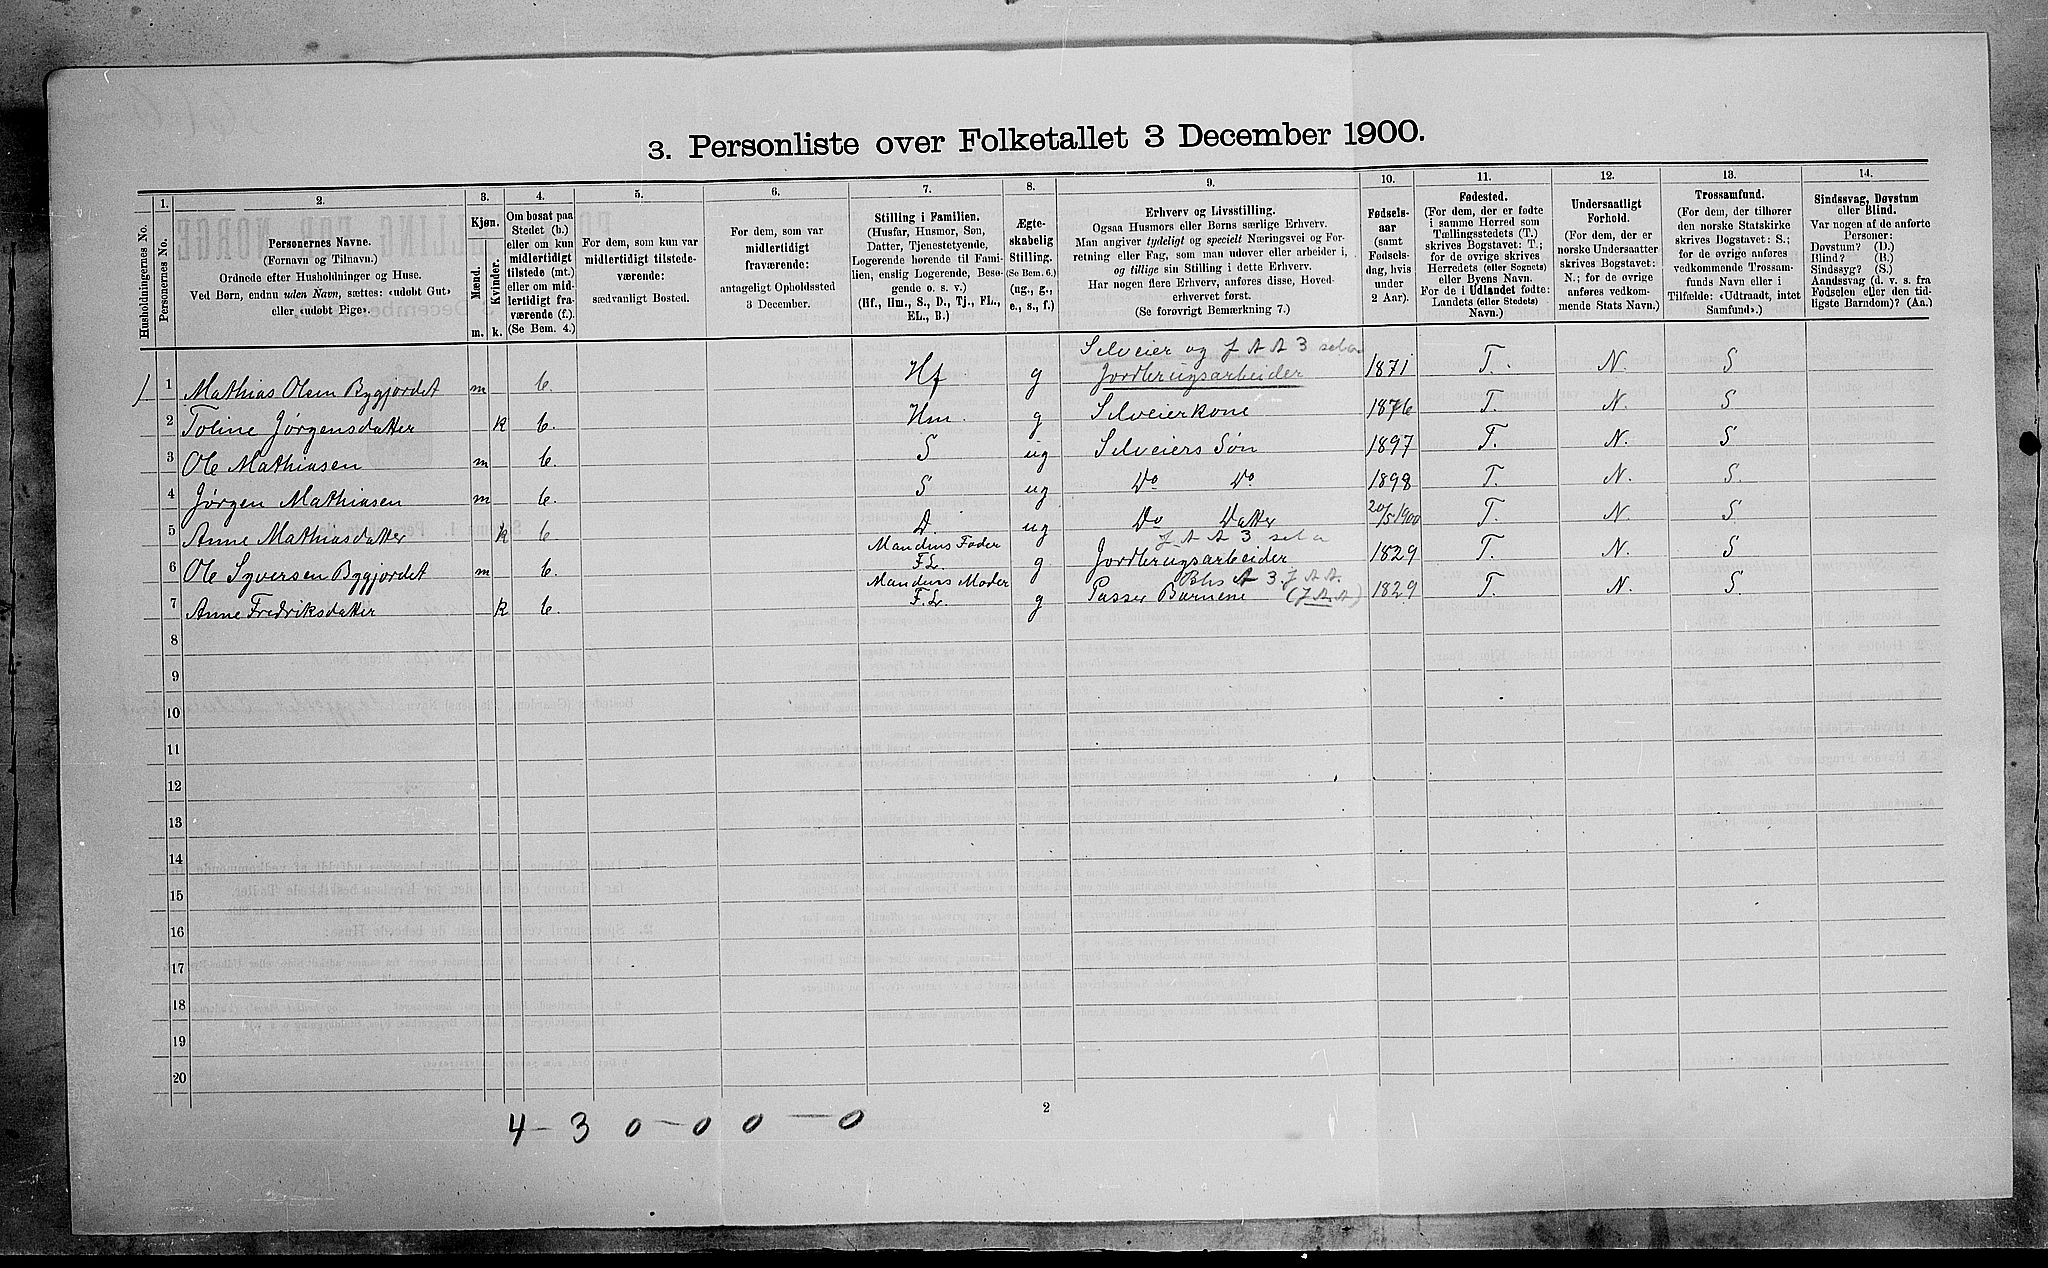 3. Personliste over Folketallet 3 December 1900.
Husholdningernes No.
1. Personernes No.
2. Personernes Navne. (Fornavn og Tilnavn.) Ordnede efter Husholdninger og Huse. Ved Børn, endnu uden Navn, sættes: «udøbt Gut» eller «udøbt Pige».
3. Kjøn. Mænd. m. Kvinder. k.
4. Om bosat paa Stedet (b.) eller om kun midlertidigt tilstede (mt.) eller om midlertidigt fraværende (f.). (Se Bem. 4.)
5. For dem, som kun var midlertidigt tilstedeværende: sædvanligt Bosted.
6. For dem, som var midlertidigt fraværende: antageligt Opholdssted 3 December.
7. Stilling i Familien. (Husfar, Husmor, Søn, Datter, Tjenestetyende, Logerende hørende til Familien, enslig Logerende, Besøgende o. s. v.) (Hf., Hm., S., D., Tj., FL., EL., B.)
8. Ægteskabelig Stilling. (Se Bem. 6.) (ug., g., e., s., f.)
9. Erhverv og Livsstilling. Ogsaa Husmors eller Børns særlige Erhverv. Man angiver tydeligt og specielt Næringsvei og Forretning eller Fag, som man udøver eller arbeider i, og tillige sin Stilling i dette Erhverv. Har nogen flere Erhverv, anføres disse, Hovederhvervet først. (Se forøvrigt Bemærkning 7.)
10. Fødselsaar (samt Fødselsdag, hvis under 2 Aar).
11. Fødested. (For dem, der er fødte i samme Herred som Tællingsstedets (T.) skrives Bogstavet: T.; for de øvrige skrives Herredets (eller Sognets) eller Byens Navn. For de i Udlandet fødte: Landets (eller Stedets) Navn.)
12. Undersaatligt Forhold. (For dem, der er norske Undersaatter skrives Bogstavet: N.; for de øvrige anføres vedkommende Stats Navn.)
13. Trossamfund. (For dem, der tilhører den norske Statskirke skrives Bogstavet: S.; for de øvrige anføres vedkommende Trossamfunds Navn eller i Tilfælde: «Udtraadt, intet Samfund».)
14. Sindssvag, Døvstum eller Blind. Var nogen af de anførte Personer: Døvstum? (D.) Blind? (B.) Sindssyg? (S.) Aandssvag (d. v. s. fra Fødselen eller den tidligste Barndom)? (Aa.)
Selveier og J A A 3
1 1 Mathias Olsen Bygjordet m b. Hf g Jordbrugsarbeider 1871 T. N. S
2 Toline Jørgensdatter k b. Hm. g Selveierkone 1876 T. N. S
3 Ole Mathiasen m b. S ug Selveiers Søn 1897 T. N. S
4 Jørgen Mathiasen m b. S ug Do Do 1898 T. N. S.
5 Anne Mathiasdatter k b D ug Do Datter 20/5 1900 T. N. S
Mandens Fader J A A 3
6 Ole Syversen Bygjordet m b. F.L. g Jordbrugsarbeider 1829 T. N. S
Mandens Moder Bhs A 3. J A A.
7 Anne Fredriksdatter k b. F.L. g Passer Børnene (J A A) 1829 T. N. S.
8
9
10
11
12
13
14
15
16
17
18
19
20
2
4 - 3 0 - 0 0 - 0